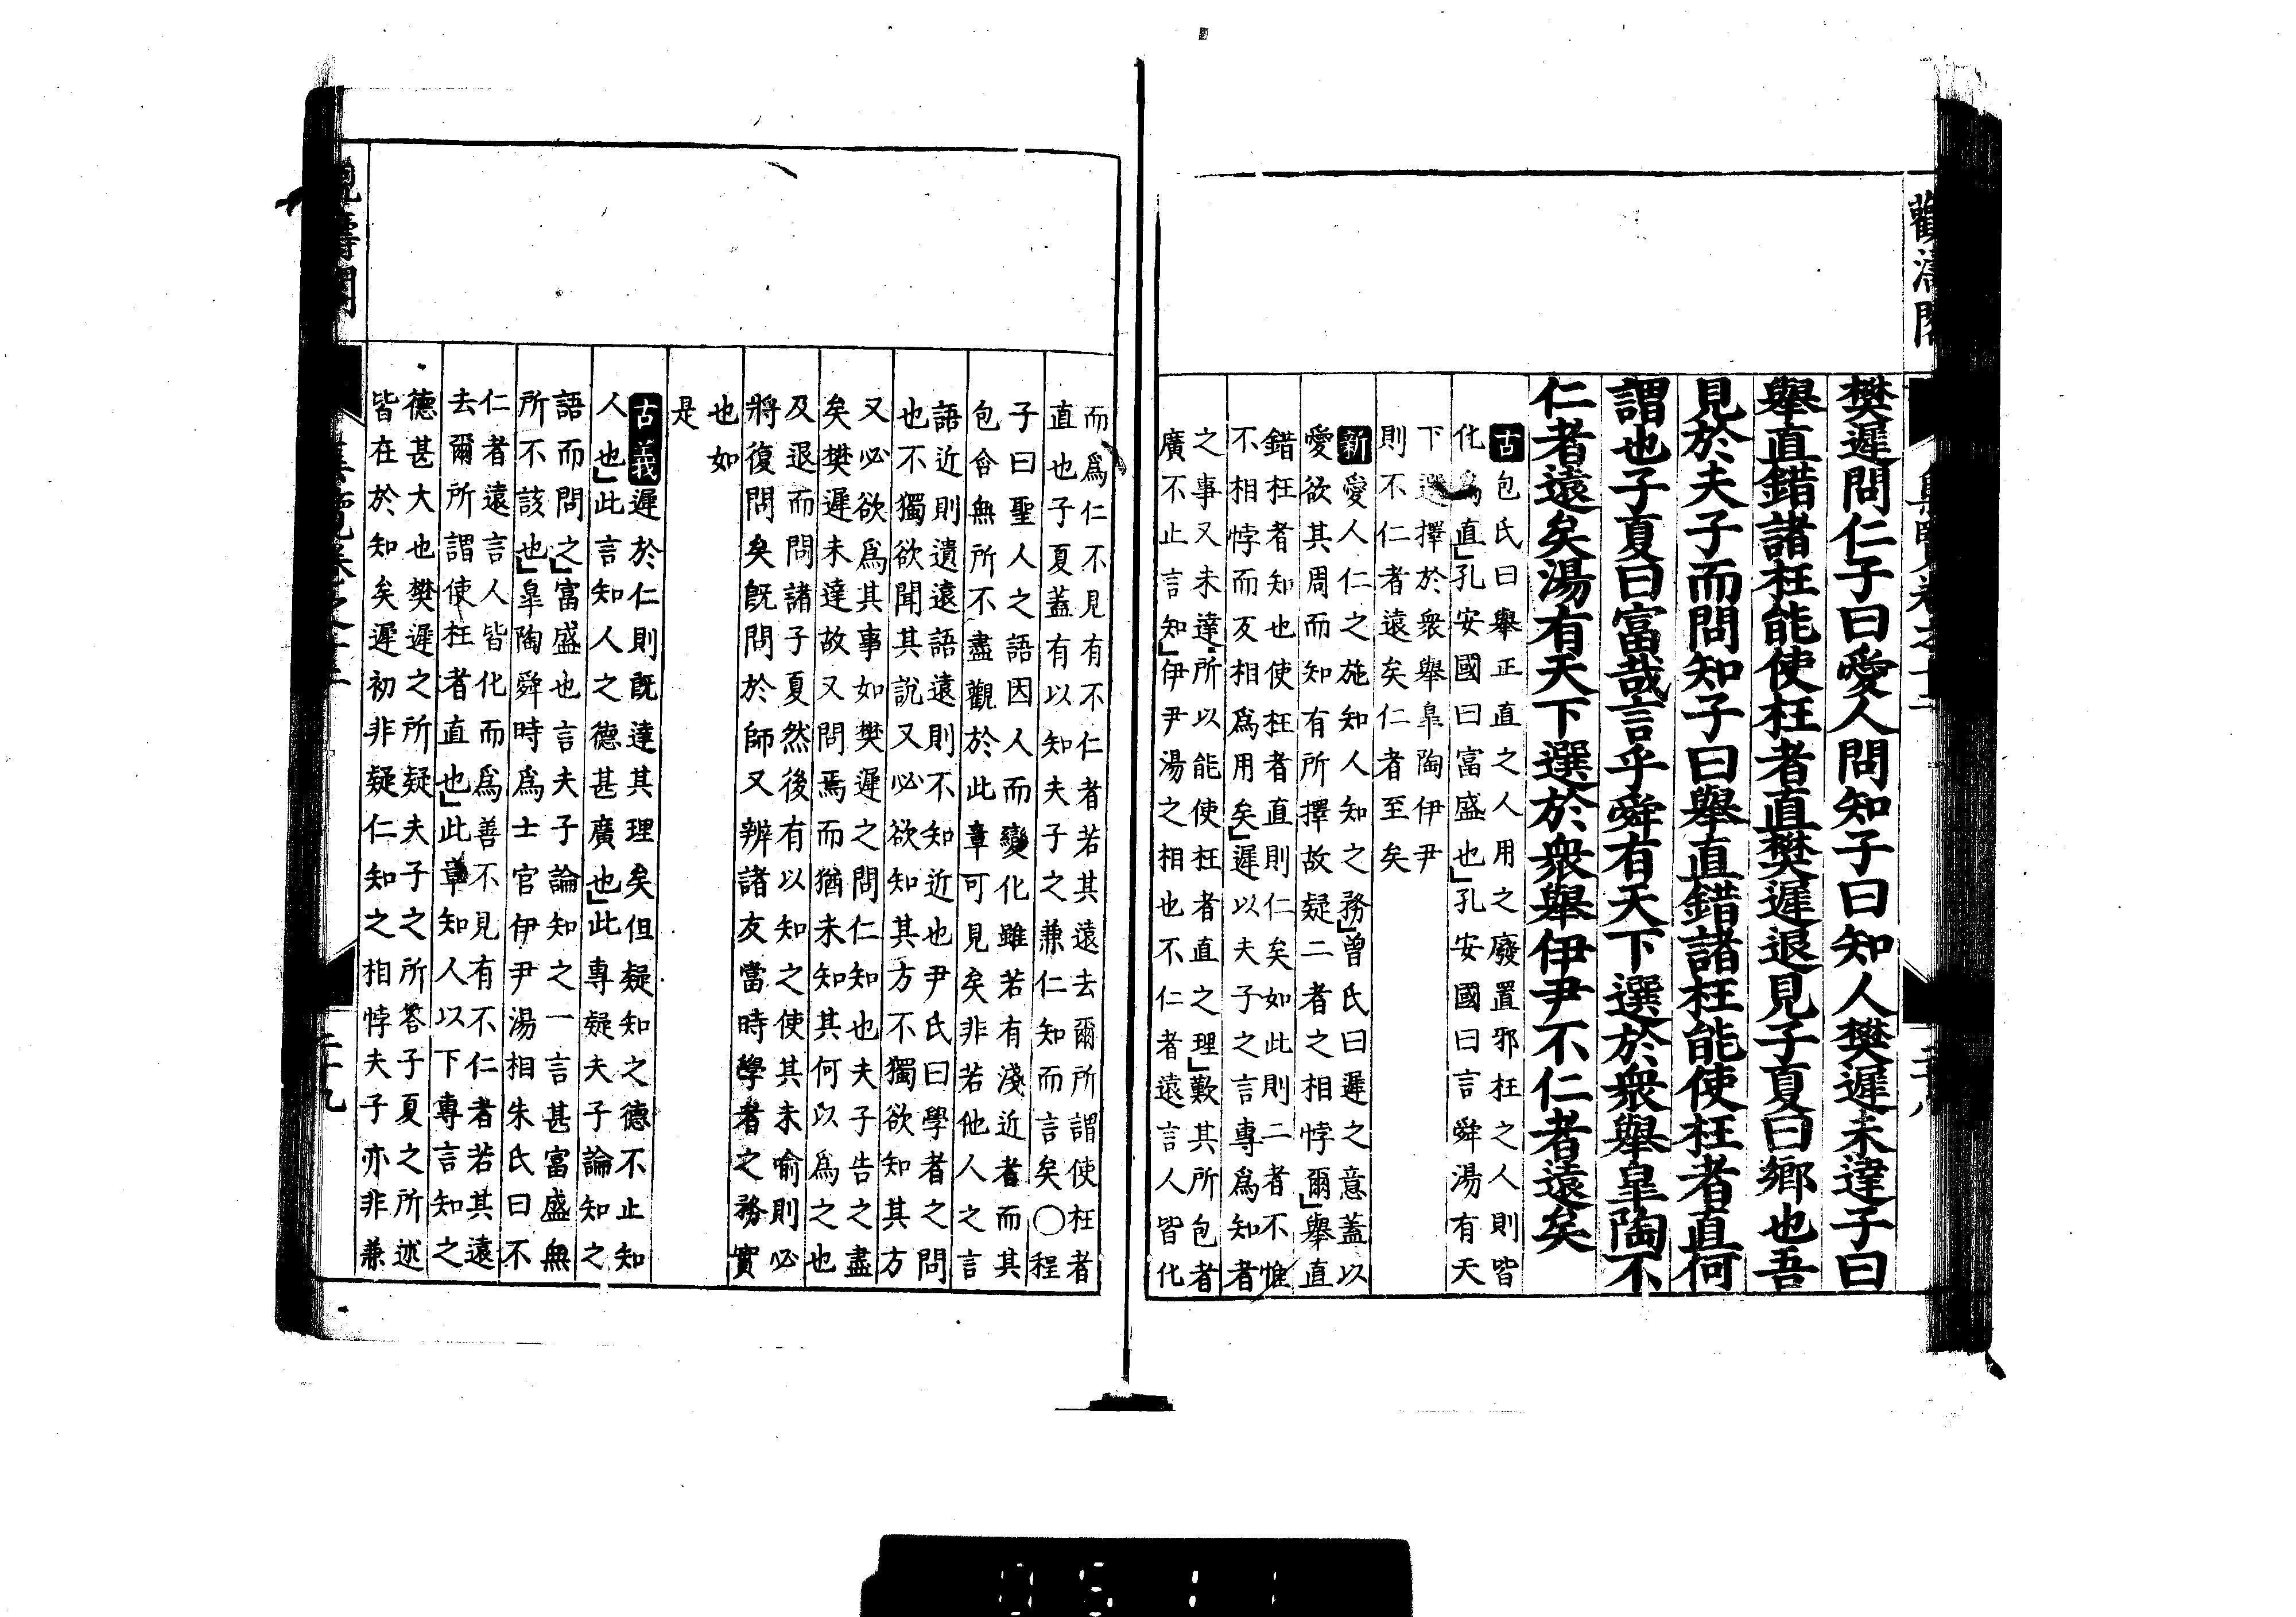 樊遲問仁子曰愛人問知子曰知人樊遲未達子曰
舉直錯諸枉能使枉者直樊遲退見子夏曰鄉也吾
見於夫子而問知子曰舉直錯諸枉能使枉者直何
謂也子夏曰富哉言乎舜有天下選於衆舉皐陶不
仁者遠矣湯有天下選於衆舉伊尹不仁者遠矣
古包氏曰舉正直之人用之廢置邪枉之人則皆
化爲直」孔安國曰富盛也」孔安國曰言舜湯有天
下選擇於衆舉皐陶伊尹
則不仁者遠矣仁者至矣
新愛人仁之施知人知之務」曾氏曰遲之意蓋以
愛欲其周而知有所擇故疑二者之相悖爾」舉直
錯枉者知也使枉者直則仁矣如此則二者不惟
不相悖而反相爲用矣」遲以夫子之言專爲知者
之事又未達所以能使枉者直之理」歎其所包者
廣不止言知」伊尹湯之相也不仁者遠言人皆化
而爲仁不見有不仁者若其遠去爾所謂使枉者
直也子夏蓋有以知夫子之兼仁知而言矣○程
子曰聖人之語因人而變化雖若有淺近者而其
包含無所不盡觀於此章可見矣非若他人之言
語近則遺遠語遠則不知近也尹氏曰學者之問
也不獨欲聞其說又必欲知其方不獨欲知其方
又必欲爲其事如樊遲之問仁知也夫子告之盡
矣樊遲未達故又問焉而猶未知其何以爲之也
及退而問諸子夏然後有以知之使其未喻則必
將復問矣既問於師又辨諸友當時學者之務實
也如
是
古義遲於仁則既達其理矣但疑知之德不止知
人也」此言知人之德甚廣也」此專疑夫子論知之
語而問之」富盛也言夫子論知之一言甚富盛無
所不該也」皐陶舜時爲士官伊尹湯相朱氏曰不
仁者遠言人皆化而爲善不見有不仁者若其遠
去爾所謂使枉者直也」此章知人以下專言知之
德甚大也樊遲之所疑夫子之所答子夏之所述
皆在於知矣遲初非疑仁知之相悖夫子亦非兼
二十九